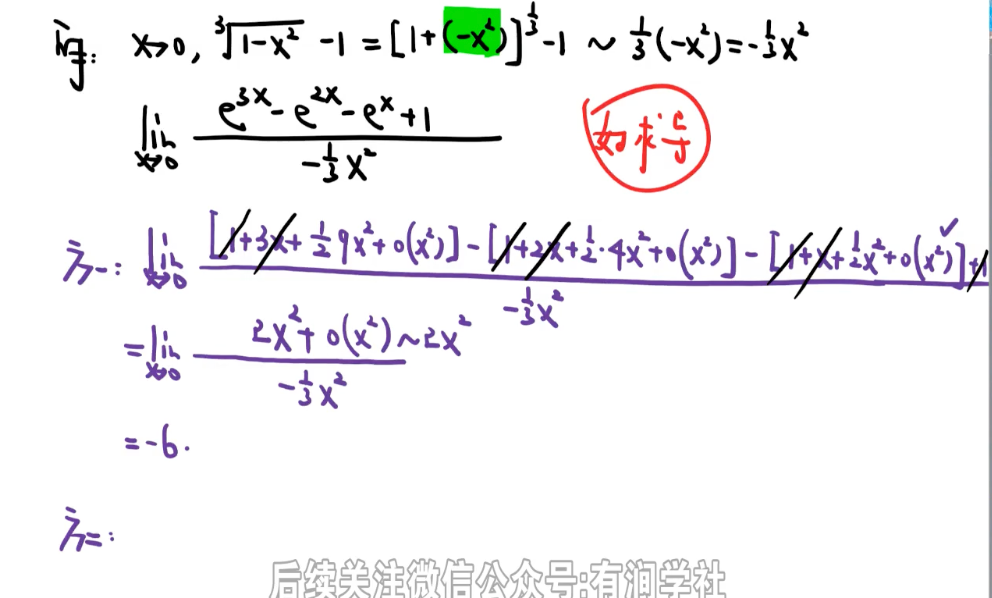 x→0, ∛(1-x²) -1 = [1+(-x²)]^(1/3) -1 ~ 1/3(-x²) = -1/3x²
lim x→0 (e^(3x) - e^(2x) - e^x + 1)/(-1/3x²)
如求导
方一: lim x→0 ([1+3x+1/2 9x²+o(x²)] - [1+2x+1/2·4x²+o(x²)] - [1+x+1/2x²+o(x²)]+1)/(-1/3x²)
=lim x→0 (2x²+o(x²)~2x²)/(-1/3x²)
=-6.
方二:
后续关注微信公众号:有润学社